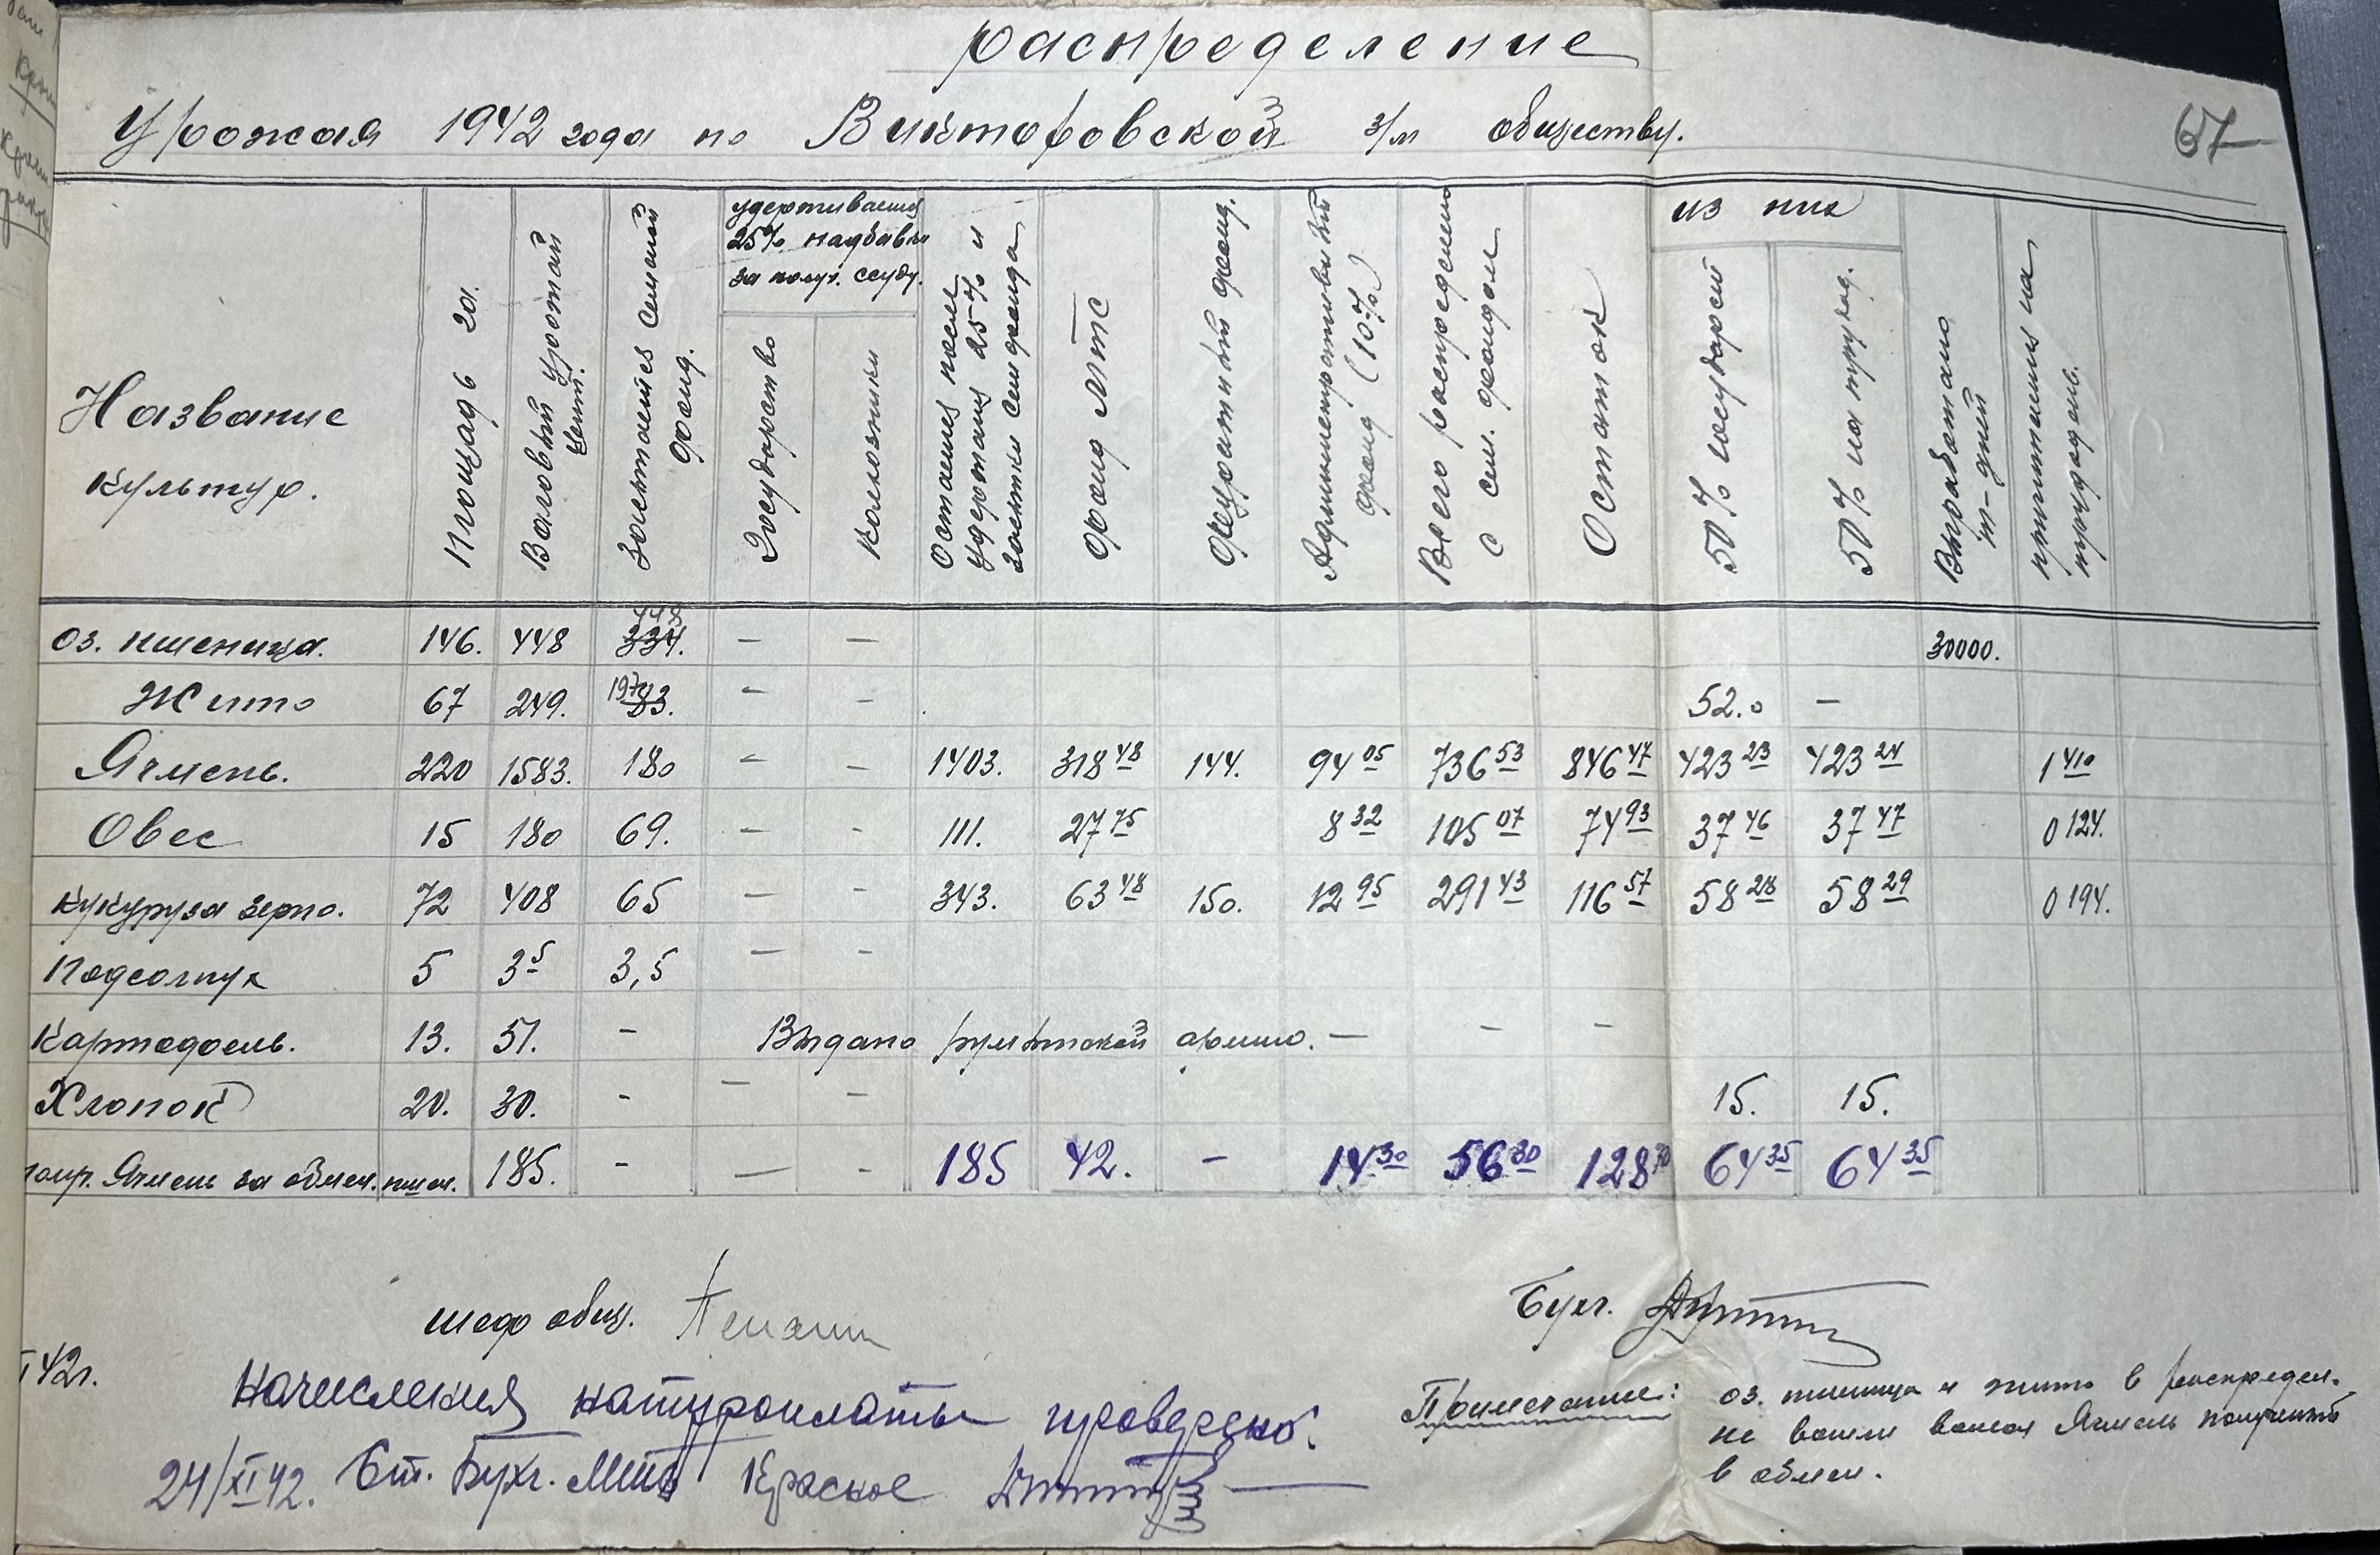 распределение
Урожая 1942 года по Викторовской з/м обществу.
67
Название культур.
Площадь га.
Валовый урожай цент.
Засыпается семяной фонд.
удерживается 25% надбавки за получ. ссуду.
Государство
Колхозники
Остается после удержания 25% и засыпки сем фонда
Фонд МТС
Фуражный фонд.
Административный фонд (10%)
Всего распределено с сем. фондом
Остаток
из них
50% государст
50% на труд.
Выработано т-дней
причтения на трудодень.
оз. пшеница. 146. 448 448 334. — — 30000.
Жито 67 249. 197 83. — – 52.0 –
Ячмень. 220 1583. 180 - – 1403. 318 48 144. 94 05 736 53 846 47 423 23 423 24 1 410
Овес 15 180 69. – - 111. 27 75 8 32 105 07 74 93 37 46 37 47 0 124.
Кукуруза зерно. 72 408 65 — - 343. 63 48 150. 12 95 291 43 116 57 58 28 58 29 0 194.
Подсолнух 5 3 5 3,5 — -
Картофель. 13. 51. - Выдано румынской армию. — – –
Хлопок 20. 30. - — – 15. 15.
получ. Ячмень за обмен. пшен. 185. - — - 185 42. – 14 30 56 30 128 70 64 35 64 35
шеф общ.
Бухг.
42г.
Начисления натуроплаты проверено.
24/XI 42. Ст. Бухг. МТС Красное
Примечание: оз. пшеница и жито в распредел.
не вошли вошел Ячмень полученый
в обмен.